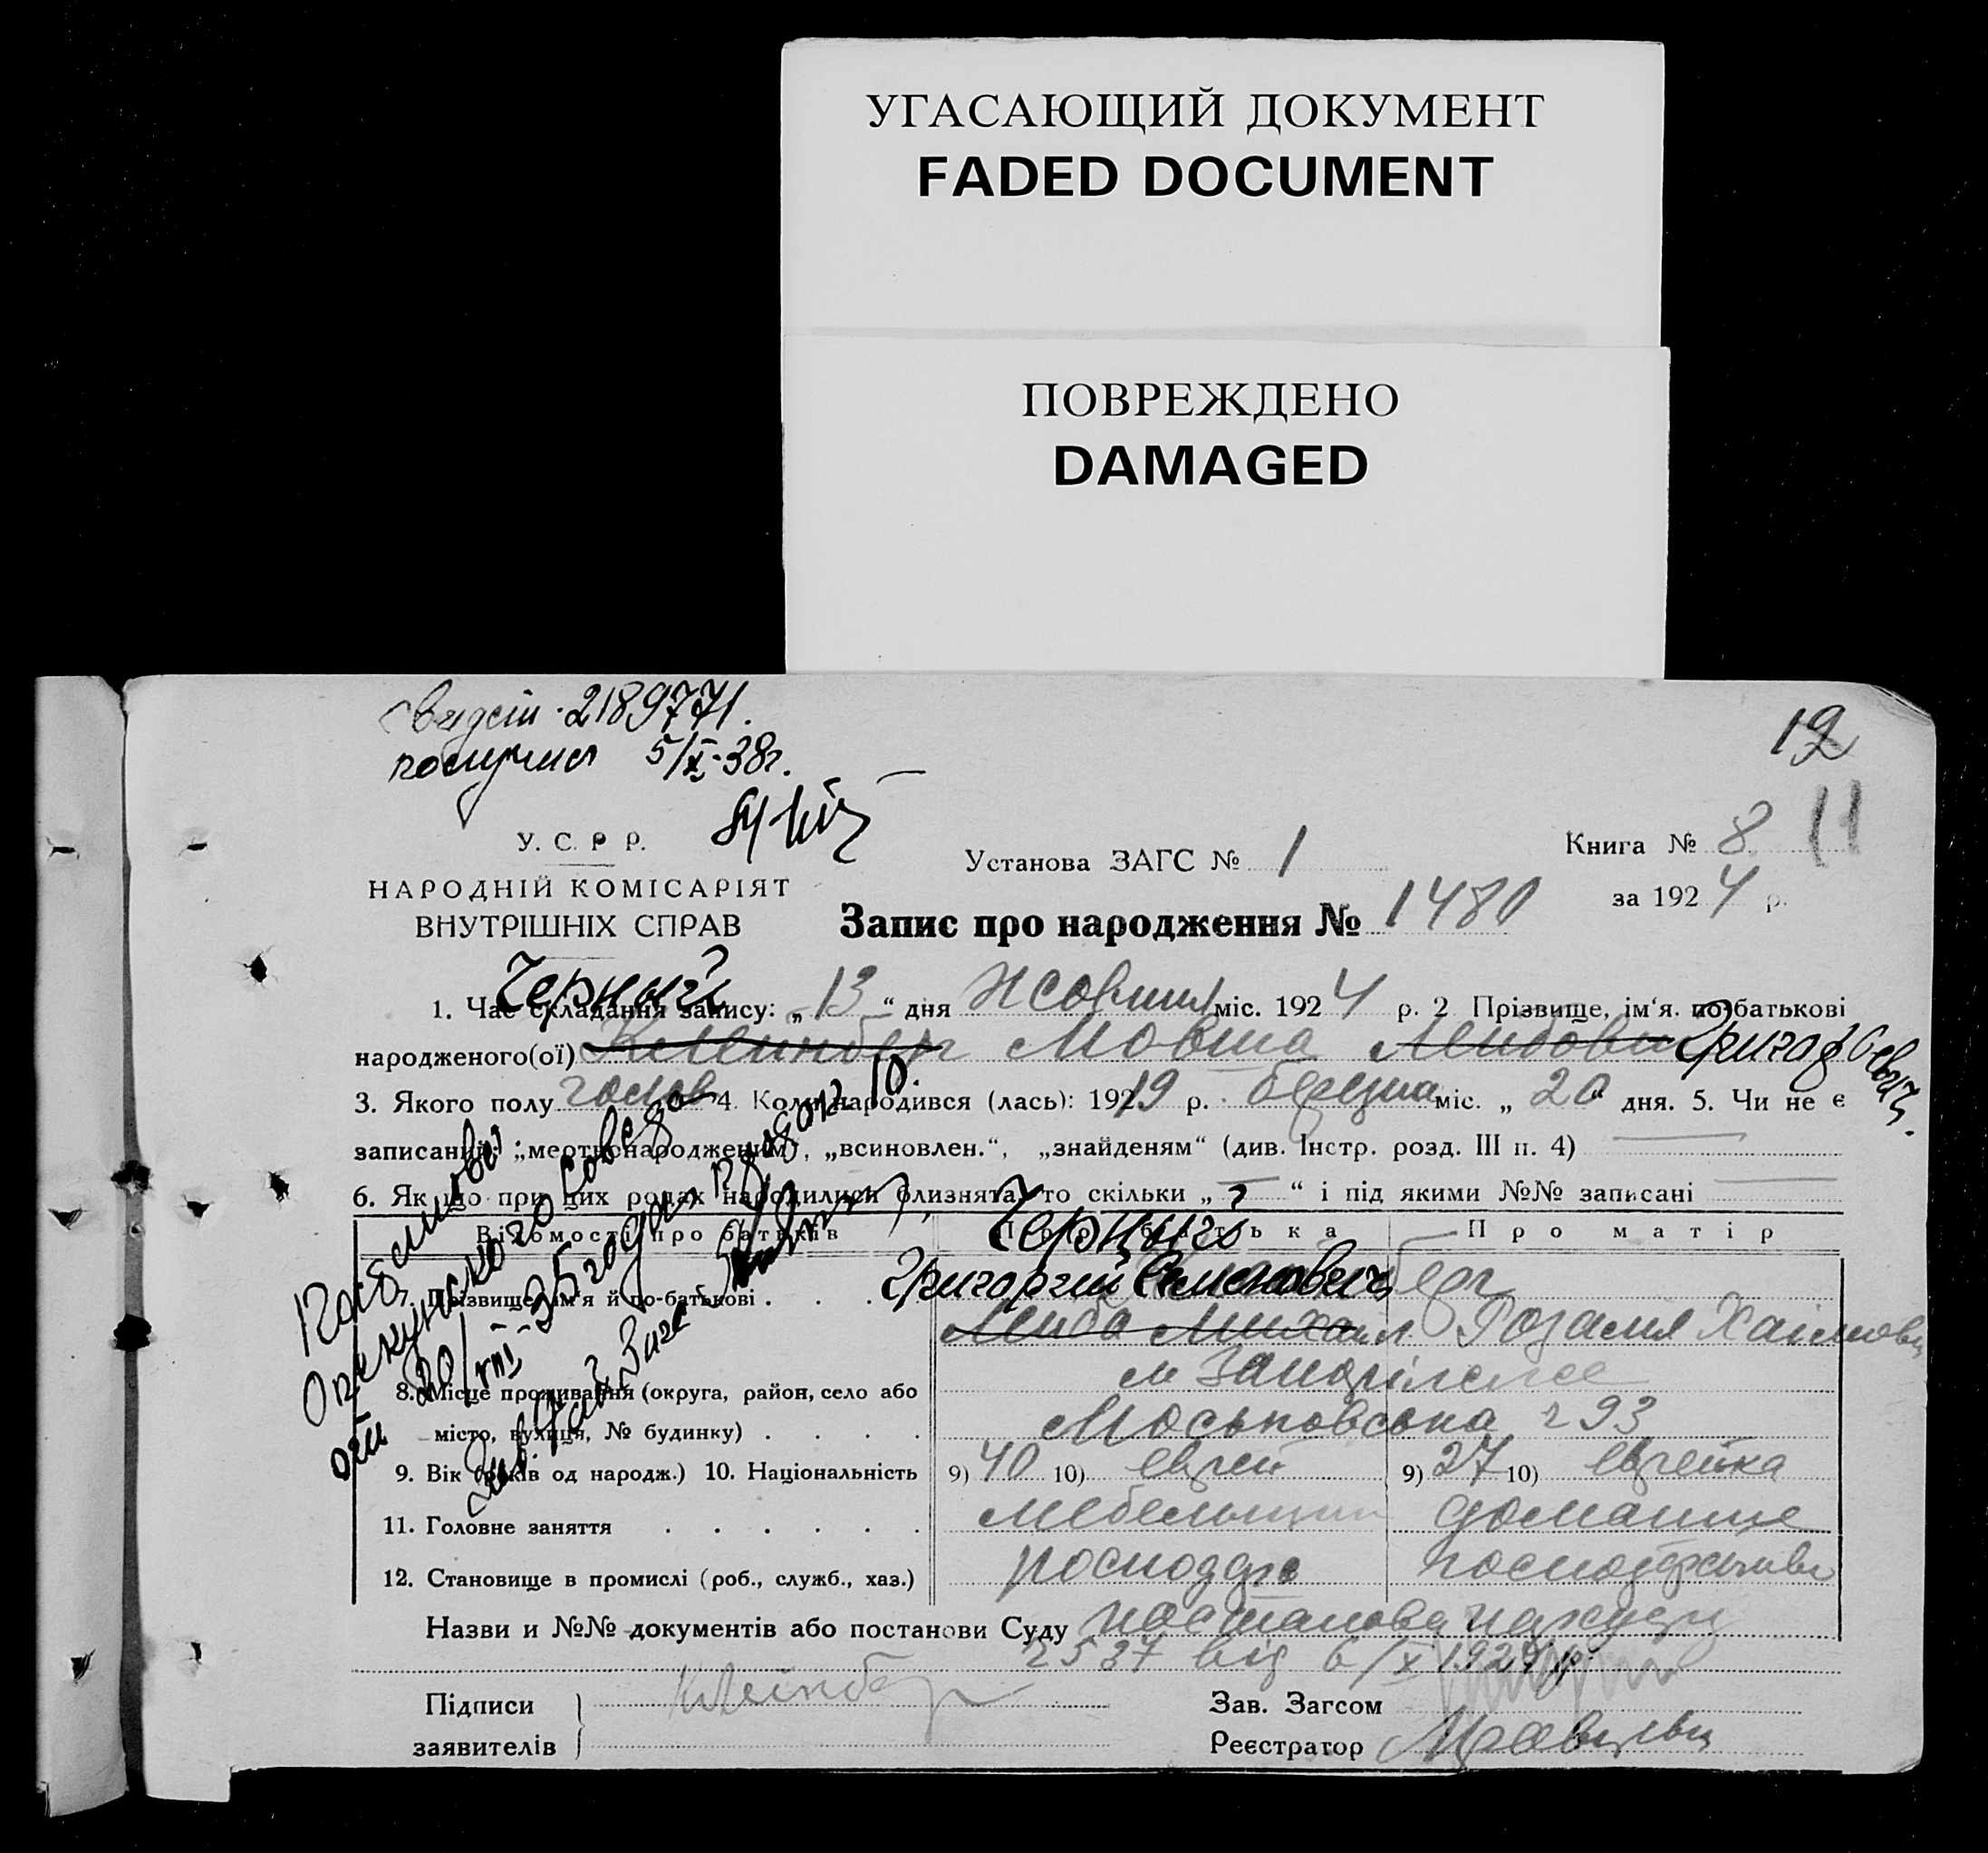 УГАСАЮЩИЙ ДОКУМЕНТ
FADED DOCUMENT
ПОВРЕЖДЕНО
DAMAGED
свидет. 2189771.
получил 5/X-38г.
12
11
У. С. Р Р.
НАРОДНІЙ КОМІСАРІЯТ
ВНУТРІШНІХ СПРАВ
Установа ЗАГС № 1
Книга № 8
за 1924 р.
Запис про народження № 1480
Черный
1. Час складання запису: „13“ дня Жовтня міс. 1924 р. 2 Прізвище, ім'я, по-батькові
народженого(ої) Клейнберг Мовша Лейбови Григорьевич.
3. Якого полу чолов 4. Коли народився (лась): 1919 р. березня міс. „20 дня. 5. Чи не є
записаний: „мертвонародженим“, „всиновлен.“, „знайденям“ (див. Інстр. розд. III п. 4)
6. Як що при цих родах народилися близнята, то скільки „ “ і під якими №№ записані
Відомості про батьків Про батька Про матір
Черный
7. Прізвище, ім'я й по-батькові . Григорий Семенович
Лейба Михаил Розалия Хаімовн
м Запоріжжє
8. Місце проживання (округа, район, село або
місто, вулиця, № будинку) Московська 93
9. Вік (років од народж.) 10. Національність 9) 40 10) еврей 9) 27 10) еврейка
11. Головне заняття мебельщик домашнє
12. Становище в промислі (роб., служб., хаз.) господар господарство
Постановл
Опекунского Совета
от 20/VIII-35 года
Назви и №№ документів або постанови Суду постанова нарсуду
2537 від 6/X 1924 р.
Підписи
заявителів
Клейнберг
Зав. Загсом
Реєстратор